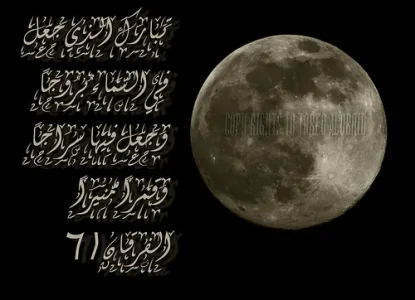 تبارك الذي جعل
في السماء بروجا
وجعل فيها سراجا
وقمرا منيرا
الفرقان ٦١
COPY RIGHTS TO